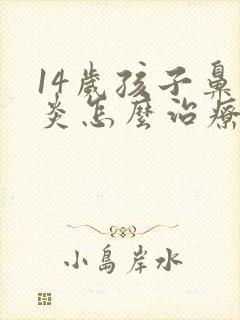 14歲孩子鼻
炎怎麼治療
小島岸水